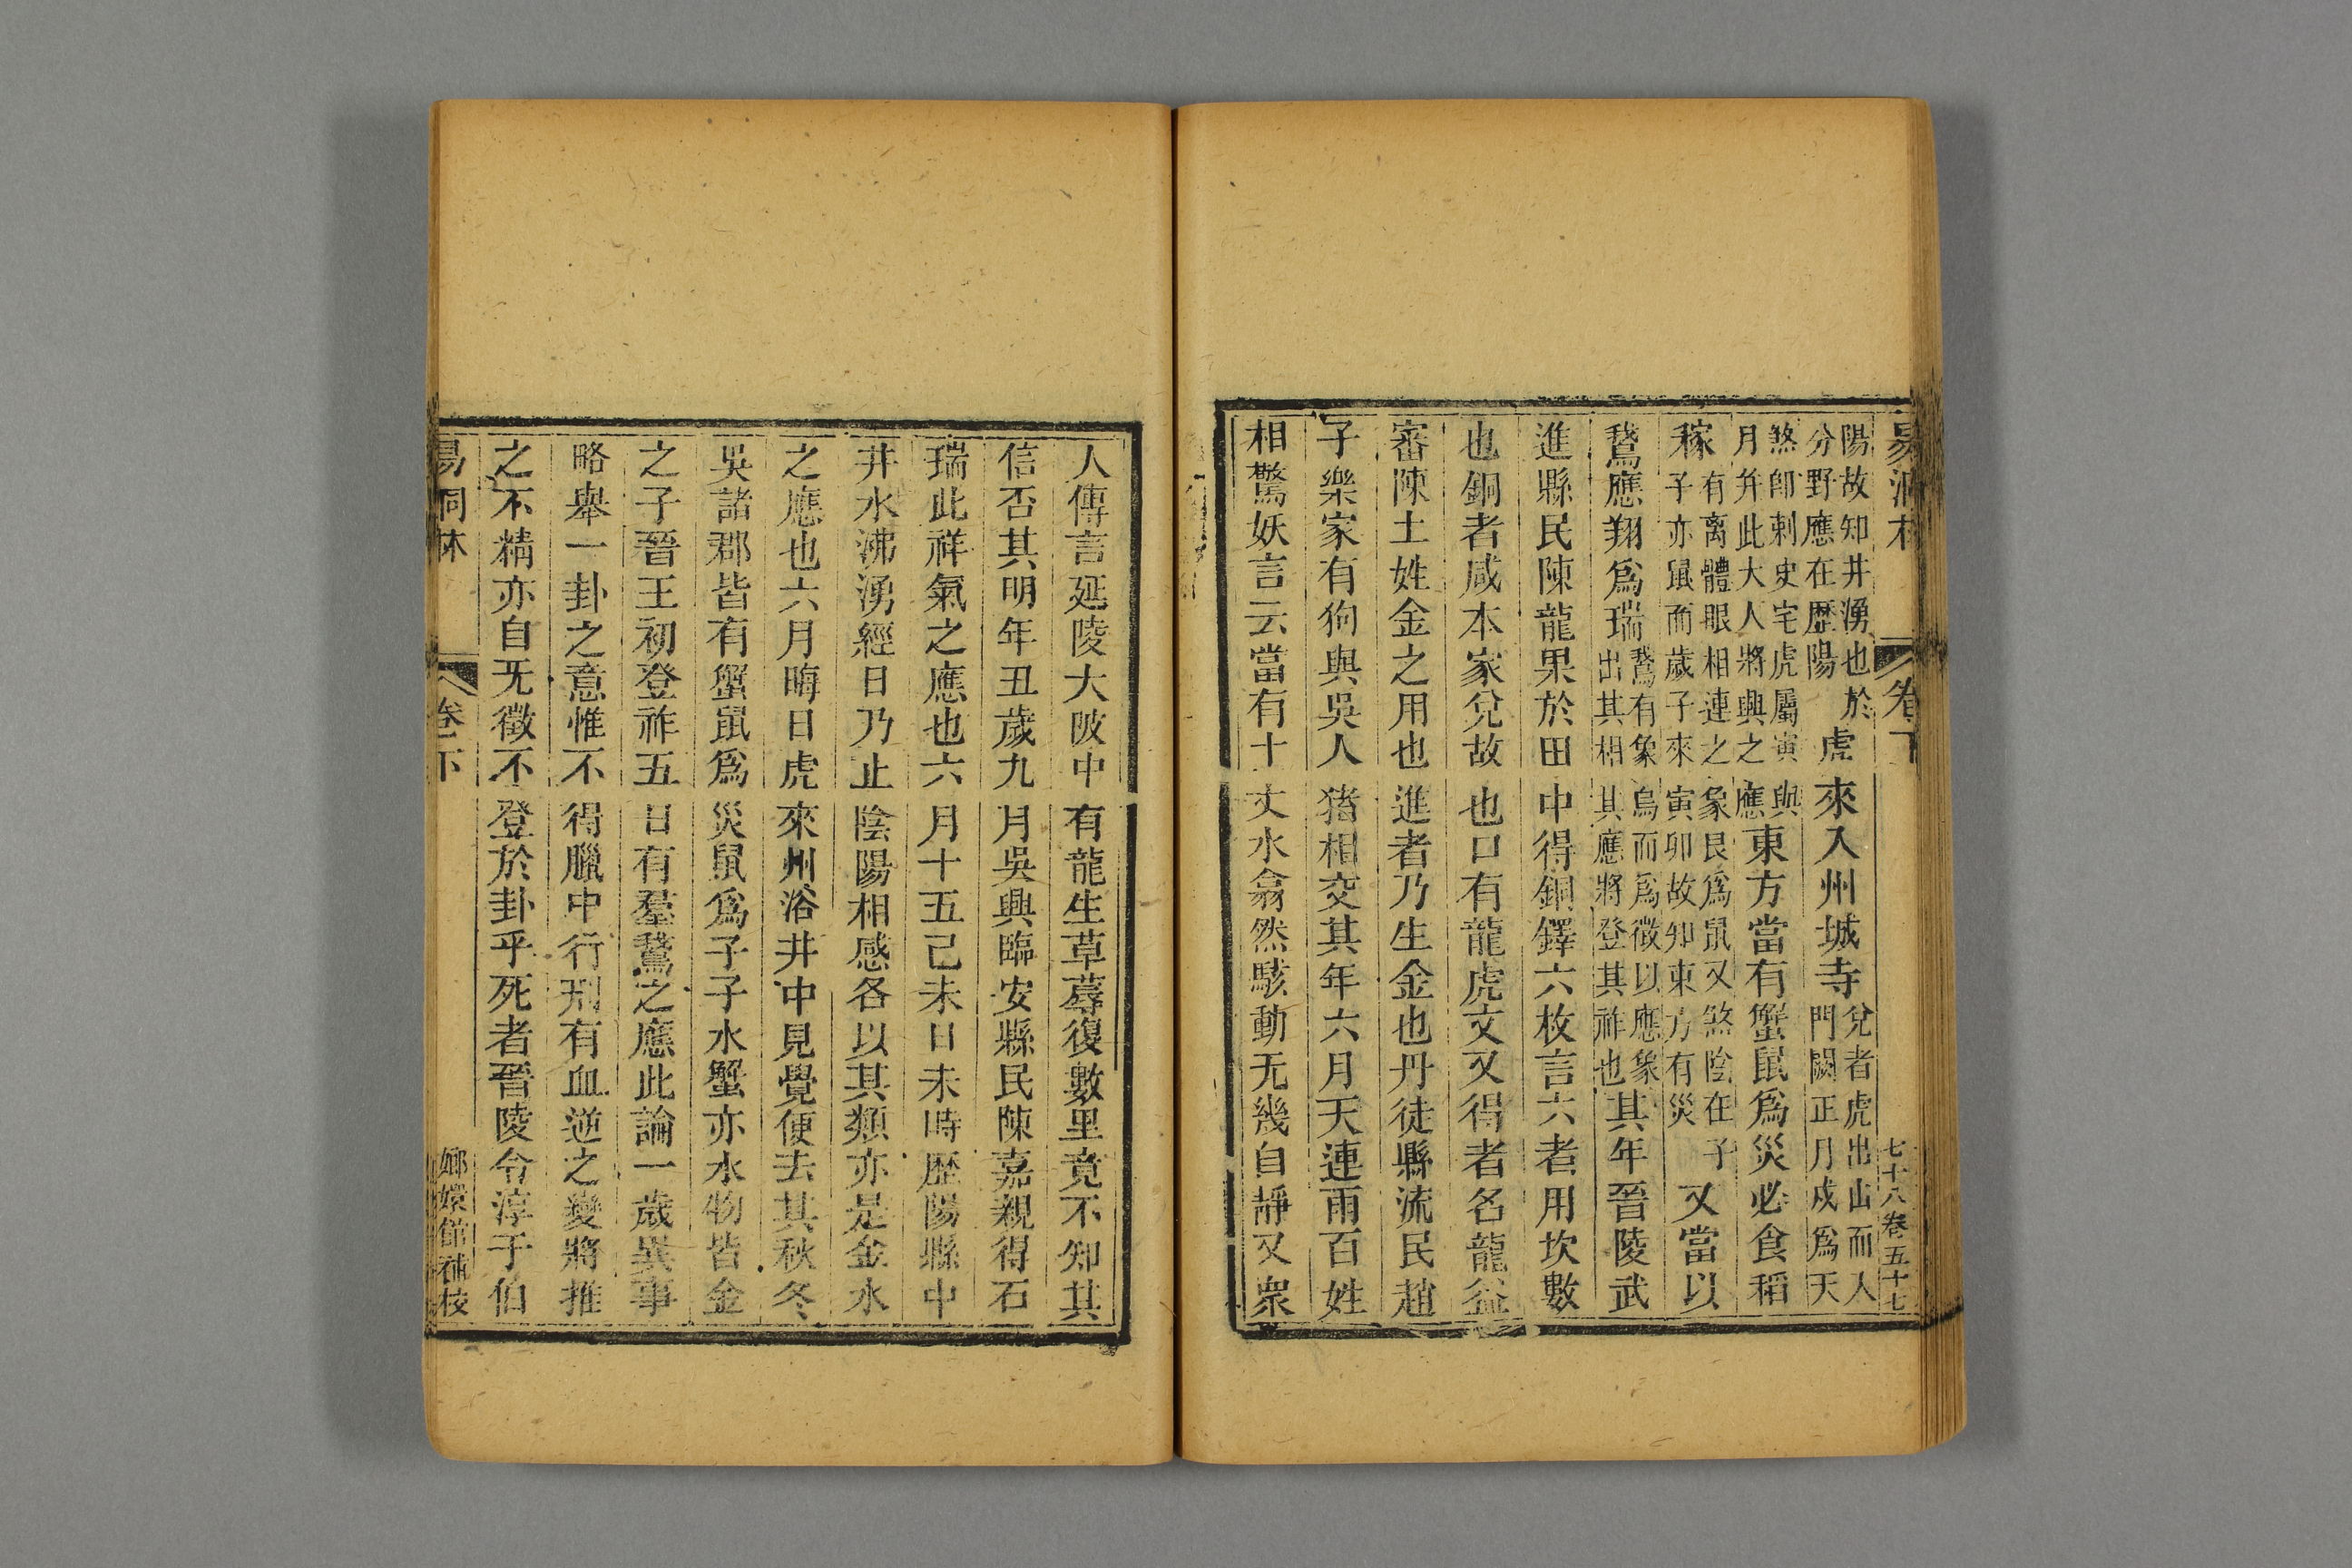 易洞林 卷下 七十八卷五十七
陽故知井湧也於
分野應在歷陽 虎來入州城寺兌者虎出山而入
門闕正月戍爲天
煞卽刺史宅虎屬寅與
月幷此大人將興之應東方當有蟹鼠爲災必食稻
稼有离體眼相連之象艮爲鼠又煞陰在子
子亦鼠而歲子來寅卯故知東方有災又當以
鵞應翔爲瑞鵞有象烏而爲徵以應象
出其相其應將登其祚也其年晉陵武
進縣民陳龍果於田中得銅鐸六枚言六者用坎數
也銅者咸本家兌故也口有龍虎文又得者名龍益
審陳土姓金之用也進者乃生金也丹徒縣流民趙
子樂家有狗與吳人猪相交其年六月天連雨百姓
相驚妖言云當有十丈水翕然駭動无幾自靜又衆
人傳言延陵大陂中有龍生草蓐復數里竟不知其
信否其明年丑歲九月吳興臨安縣民陳嘉親得石
瑞此祥氣之應也六月十五己未日未時歷陽縣中
井水沸湧經日乃止陰陽相感各以其類亦是金水
之應也六月晦日虎來州浴井中見覺便去其秋冬
吳諸郡皆有蟹鼠爲災鼠爲子子水蟹亦水物皆金
之子晉王初登祚五日有羣鵞之應此論一歲異事
略舉一卦之意惟不得臘中行刑有血逆之變將推
之不精亦自无徵不登於卦乎死者晉陵令淳于伯
易洞林 卷下 嫏嬛館補校